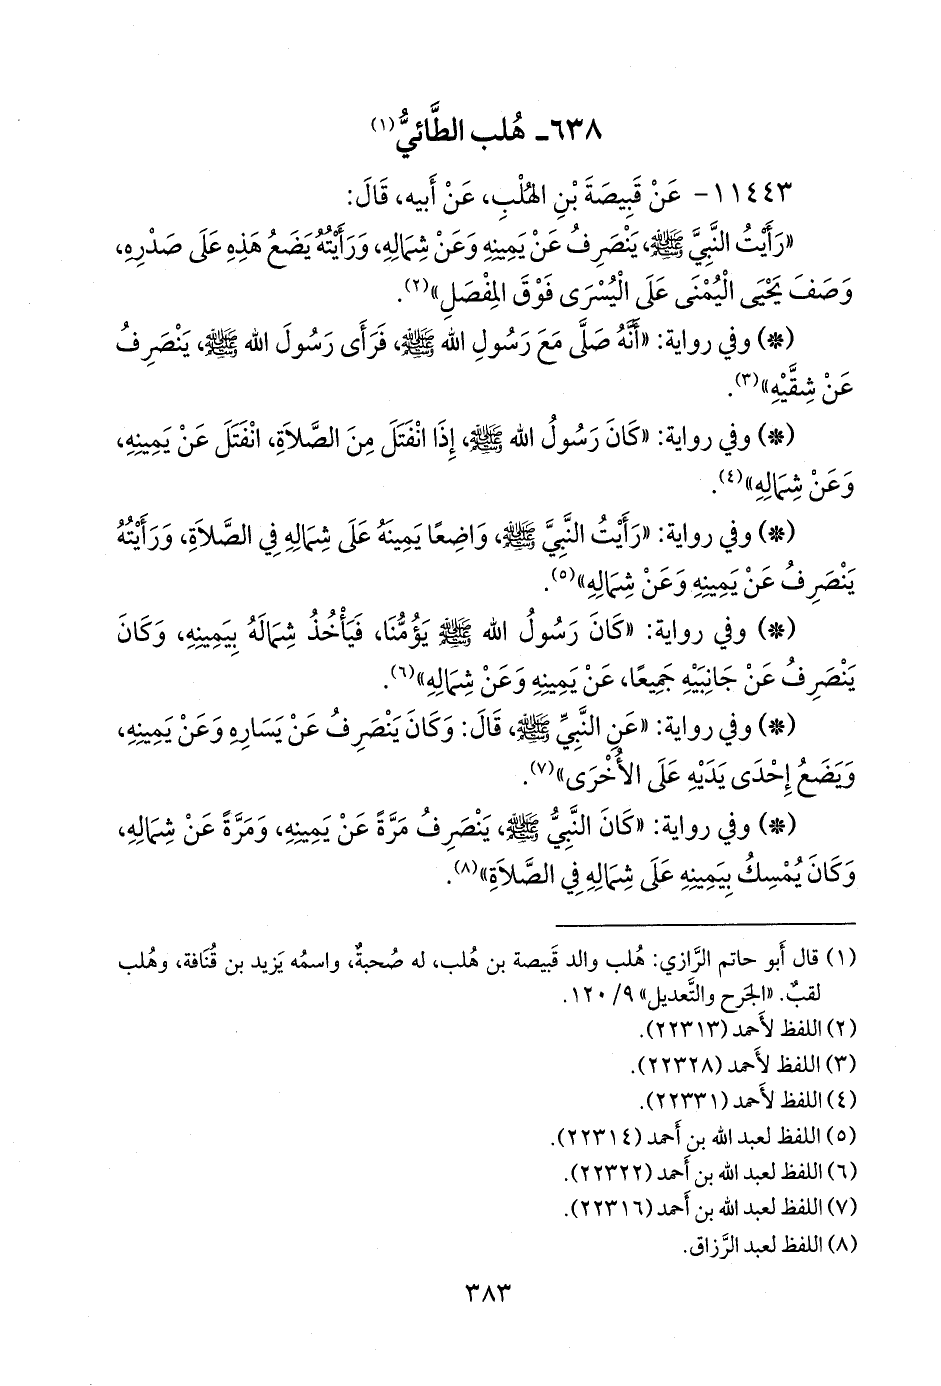 ٦٣٨ـ هُلب الطَّائيُّ(١)
١١٤٤٣- عَنْ قَبِيصَةَ بْنِ الهُلْبِ، عَنْ أَبيه، قَالَ:
«رَأَيْتُ النَّبِيَّ ﷺ، يَنْصَرِفُ عَنْ يَمِينِهِ وَعَنْ شِمَالِهِ، وَرَأَيْتُهُ يَضَعُ هَذِهِ عَلَى صَدْرِهِ،
وَصَفَ يَحْيَى الْيُمْنَى عَلَى الْيُسْرَى فَوْقَ المِفْصَلِ»(٢).
(*) وفي رواية: «أَنَّهُ صَلَّى مَعَ رَسُولِ الله ﷺ، فَرَأَى رَسُولَ الله ﷺ، يَنْصَرِفُ
عَنْ شِقَّيْهِ»(٣).
(*) وفي رواية: «كَانَ رَسُولُ الله ﷺ، إِذَا انْفَتَلَ مِنَ الصَّلاَةِ، انْفَتَلَ عَنْ يَمِينِهِ،
وَعَنْ شِمَالِهِ»(٤).
(*) وفي رواية: «رَأَيْتُ النَّبِيَّ ﷺ، وَاضِعًا يَمِينَهُ عَلَى شِمَالِهِ فِي الصَّلاَةِ، وَرَأَيْتُهُ
يَنْصَرِفُ عَنْ يَمِينِهِ وَعَنْ شِمَالِهِ»(٥).
(*) وفي رواية: «كَانَ رَسُولُ الله ﷺ يَؤُمُّنَا، فَيَأْخُذُ شِمَالَهُ بِيَمِينِهِ، وَكَانَ
يَنْصَرِفُ عَنْ جَانِبَيْهِ جَمِيعًا، عَنْ يَمِينِهِ وَعَنْ شِمَالِهِ»(٦).
(*) وفي رواية: «عَنِ النَّبِيِّ ﷺ، قَالَ: وَكَانَ يَنْصَرِفُ عَنْ يَسَارِهِ وَعَنْ يَمِينِهِ،
وَيَضَعُ إِحْدَى يَدَيْهِ عَلَى الأُخْرَى»(٧).
(*) وفي رواية: «كَانَ النَّبِيُّ ﷺ، يَنْصَرِفُ مَرَّةً عَنْ يَمِينِهِ، وَمَرَّةً عَنْ شِمَالِهِ،
وَكَانَ يُمْسِكُ بِيَمِينِهِ عَلَى شِمَالِهِ فِي الصَّلاَةِ»(٨).
(١) قال أَبو حاتم الرَّازي: هُلب والد قَبيصة بن هُلب، له صُحبةٌ، واسمُه يَزيد بن قُنَافة، وهُلب
لقبٌ. «الجَرح والتَّعديل» ٩/ ١٢٠.
(٢) اللفظ لأَحمد (٢٢٣١٣).
(٣) اللفظ لأَحمد (٢٢٣٢٨).
(٤) اللفظ لأَحمد (٢٢٣٣١).
(٥) اللفظ لعبد الله بن أَحمد (٢٢٣١٤).
(٦) اللفظ لعبد الله بن أَحمد (٢٢٣٢٢).
(٧) اللفظ لعبد الله بن أَحمد (٢٢٣١٦).
(٨) اللفظ لعبد الرَّزاق.
٣٨٣